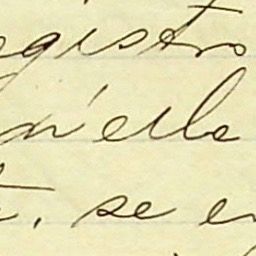 egistro
n'elle
, se e